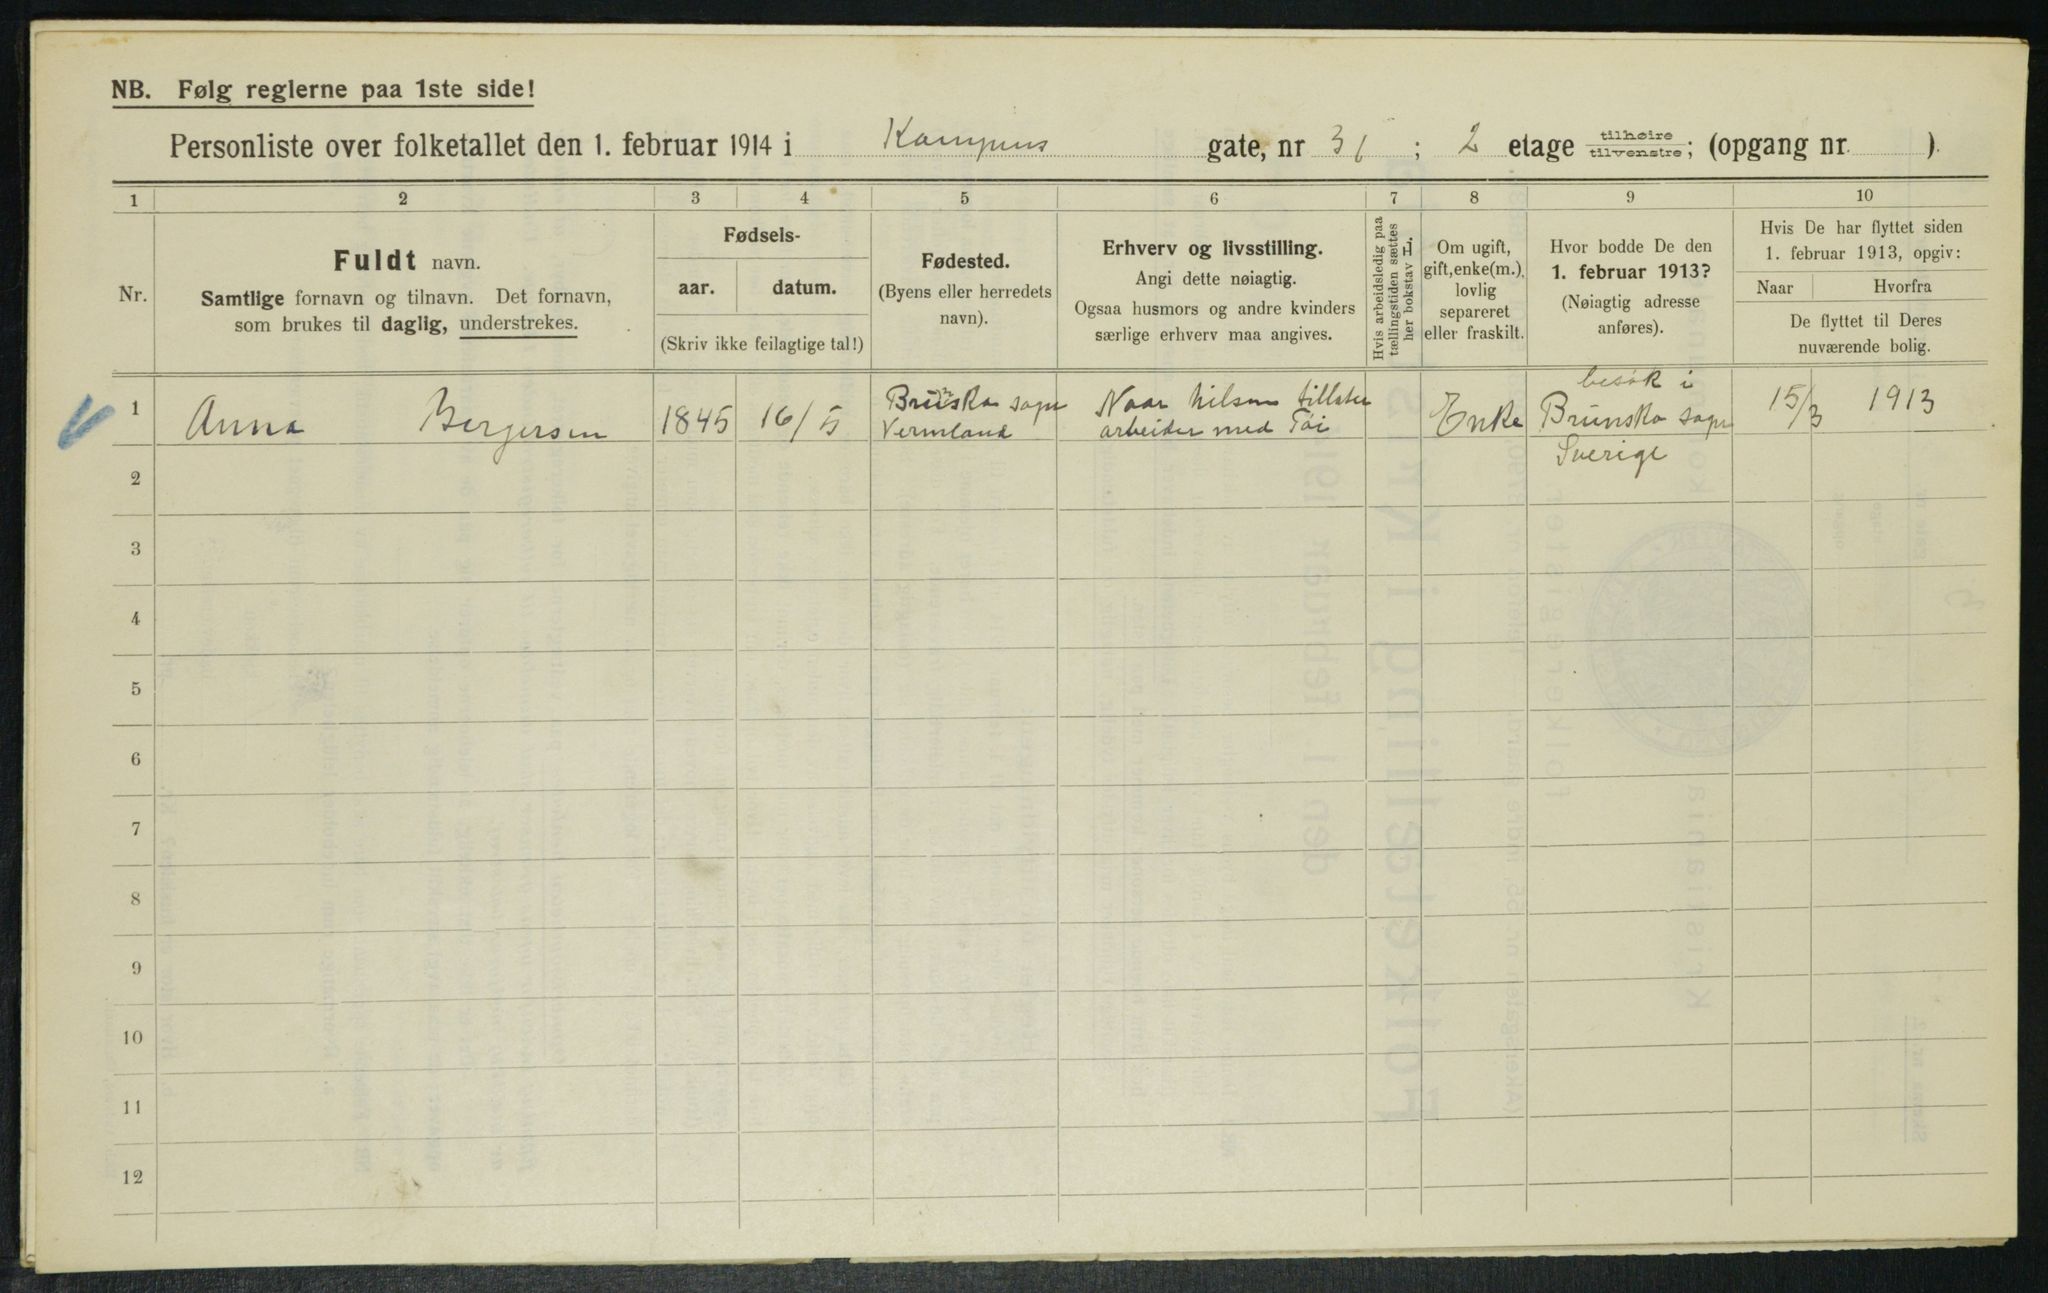 NB. Følg reglerne paa 1ste side!
Personliste over folketallet den 1. februar 1914 i Kampens gate, nr 31; 2 etage tilhøire/tilvenstre; (opgang nr. ).
1 2 3 4 5 6 7 8 9 10
Nr.
Fuldt navn.
Samtlige fornavn og tilnavn. Det fornavn,
som brukes til daglig, understrekes.
Fødsels-
aar. datum.
(Skriv ikke feilagtige tal!)
Fødested.
(Byens eller herredets
navn).
Erhverv og livsstilling.
Angi dette nøiagtig.
Ogsaa husmors og andre kvinders
særlige erhverv maa angives.
Hvis arbeidsledig paa
tællingstiden sættes
her bokstav L.
Om ugift,
gift, enke(m.),
lovlig
separeret
eller fraskilt.
Hvor bodde De den
1. februar 1913?
(Nøiagtig adresse
anføres).
Hvis De har flyttet siden
1. februar 1913, opgiv:
Naar Hvorfra
De flyttet til Deres
nuværende bolig.
1 Anna Bergersen 1845 16/5
Brunsko sogn
Vermland
Naar helsen tillater
arbeider med Tøi
Enke
besøk i
Brunsko sogn
Sverige
15/3 1913
2
3
4
5
6
7
8
9
10
11
12